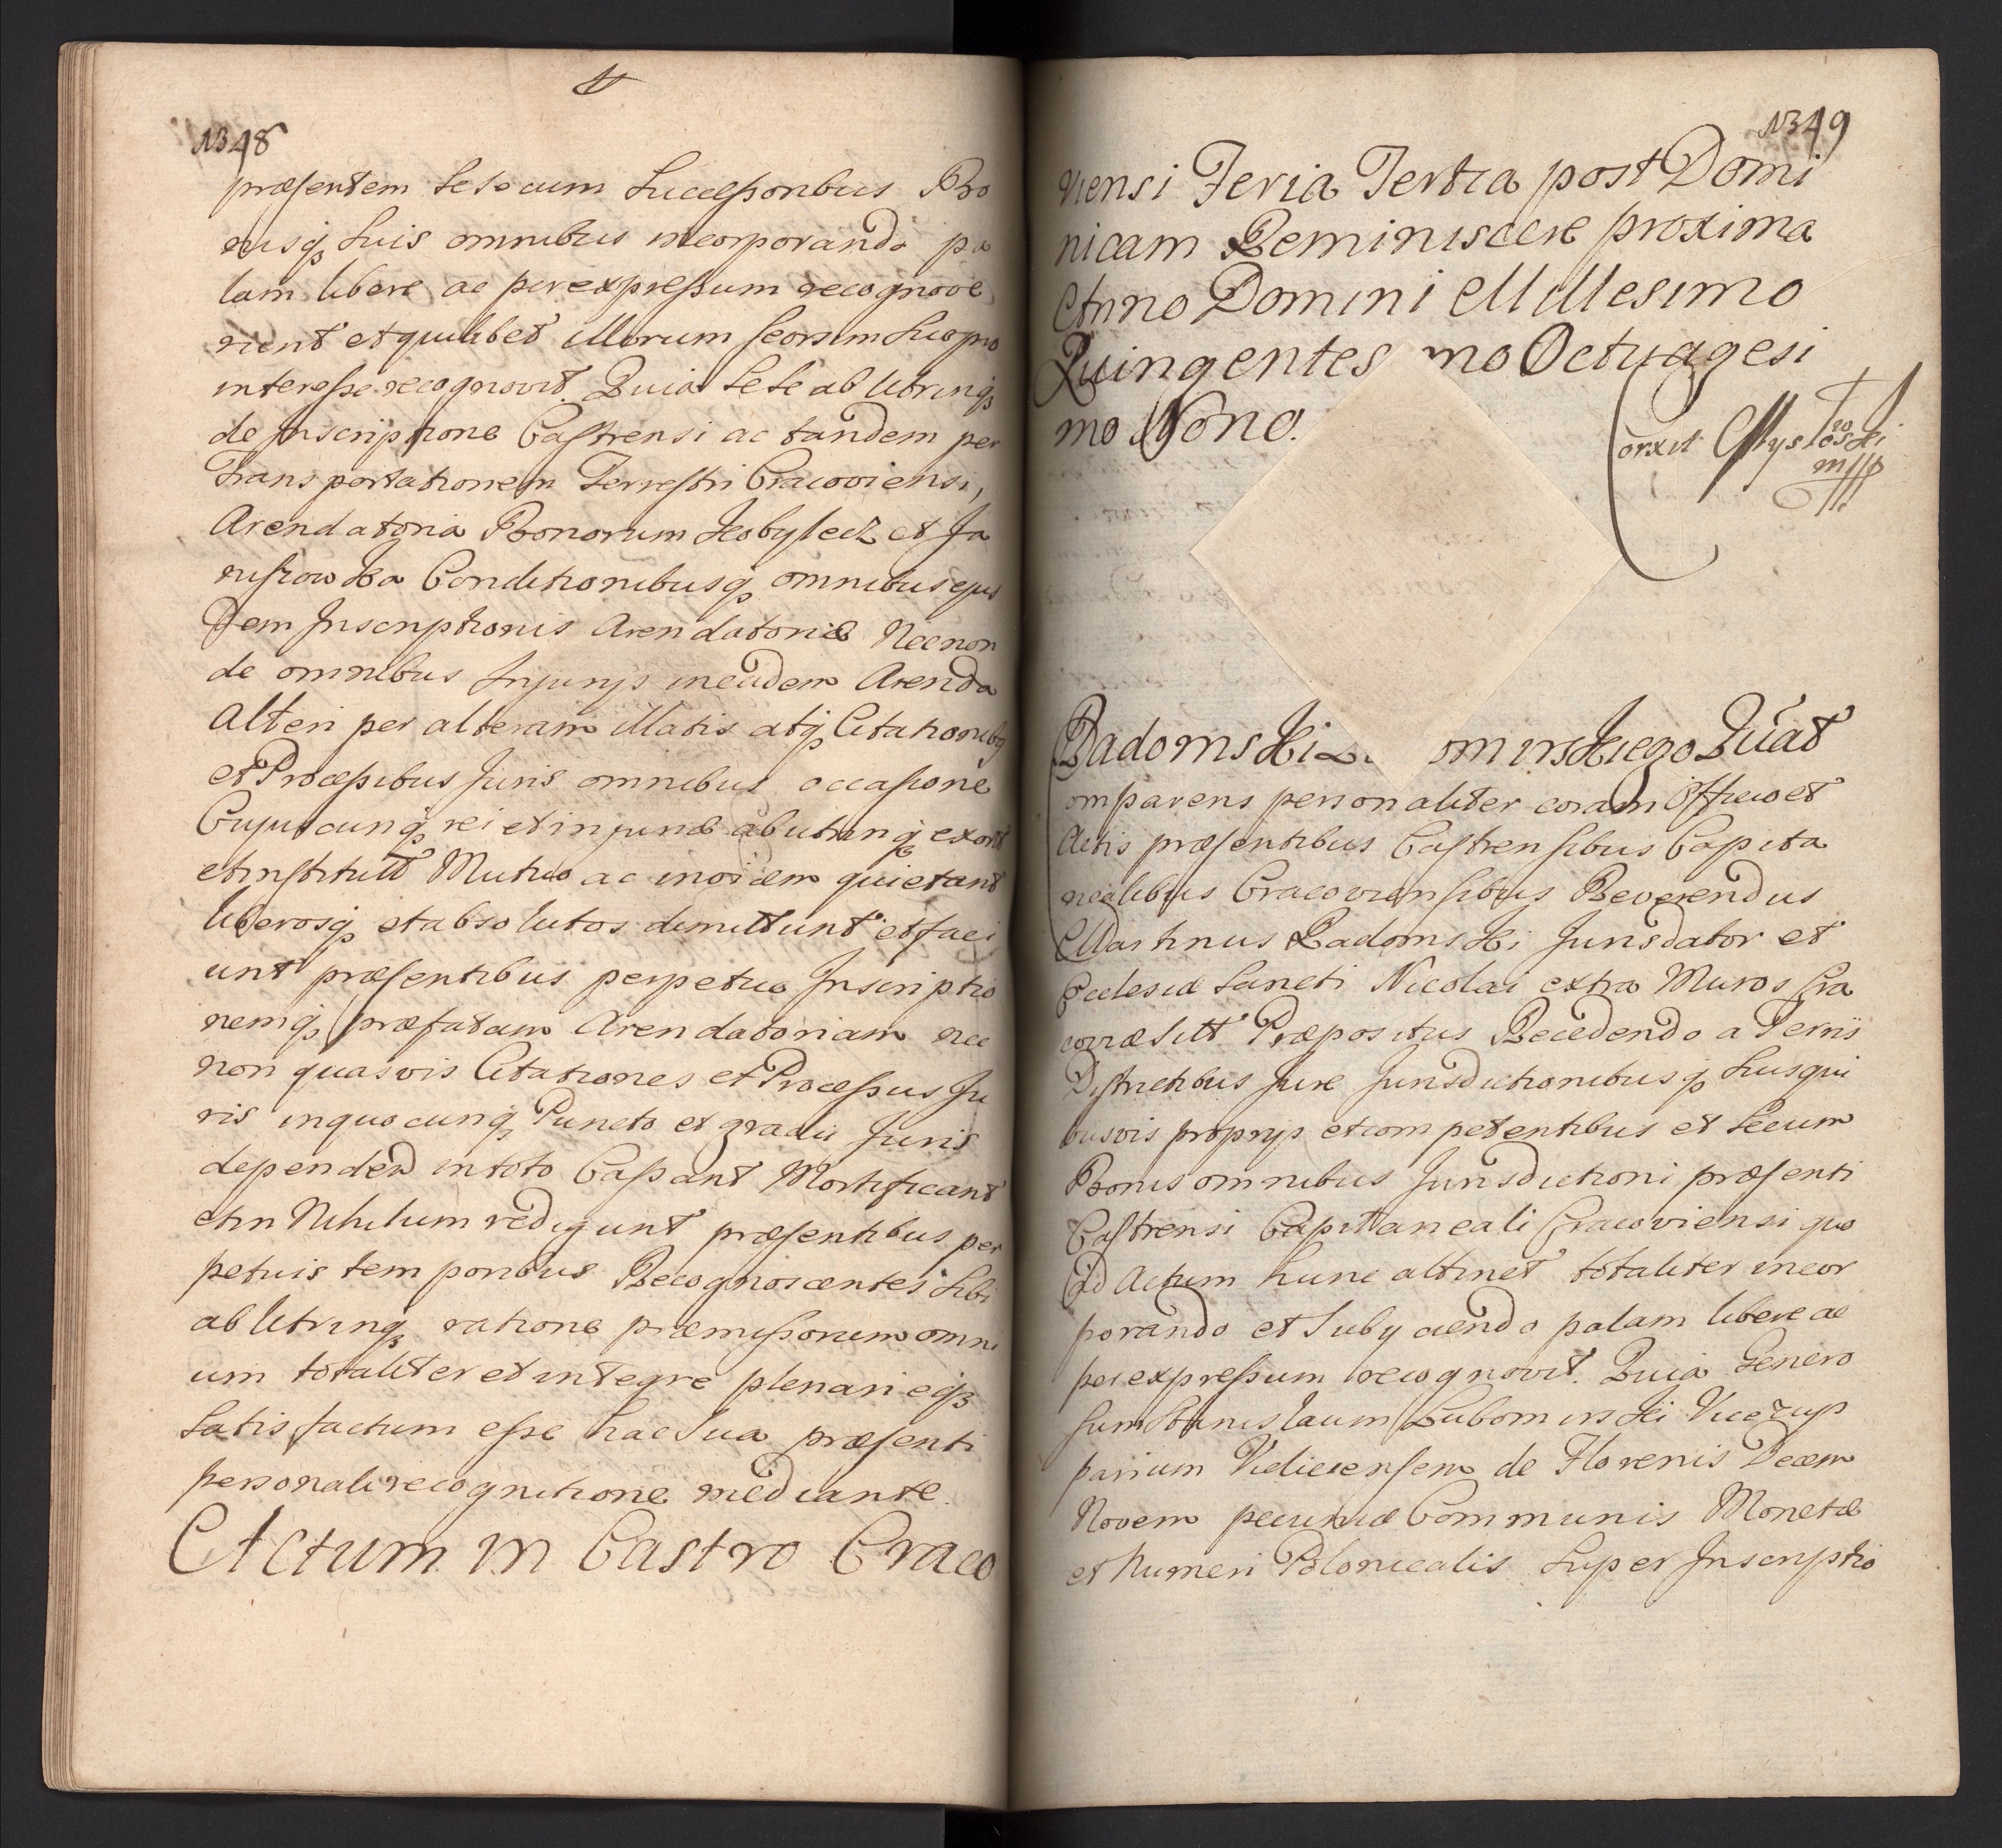 1348
præsentem sese cum Successoribus Bo
nisq; suis omnibus incorporando pa
lam libere ac per expressum recognove
runt et quilibet illorum seorsim suo pro
interesse recognovit. Quia sese ab utrinq;
de Inscriptione Castrensi ac tandem per
Transportationem Terrestri Cracoviensi,
Arendatoria Bonorum Kobylecz et Ja
niszowka Conditionibusq; omnibus ejus
dem Inscriptionis Arendatoriæ Necnon
de omnibus Injurijs in eadem Arenda
Alteri per alteram illatis atq; Citationibq
et Processibus Juris omnibus occasione
Cujuscunq; rei et injuriæ ab utrinq; exort
et institutt Mutuo ac invicem quietant
liberosq; et absolutos dimittunt et faci
unt præsentibus perpetuo Inscriptio
nemq; præfatam Arendatoriam nec
non quasvis Citationes et Processus Ju
ris in quocunq; Puncto et gradu Juris
dependen in toto Cassant Mortificant
et in Nihilum redigunt præsentibus per
petuis temporibus Recognoscentes sibi
ab utrinq; ratione præmissorum omni
um totaliter et integre plenarieq;
Satisfactum esse hac sua præsenti
personali recognitione mediante.
Actum in Castro Craco
1349
viensi Feria Tertia post Domi
nicam Reminiscere proxima
Anno Domini Millesimo
Quingentes mo Octuagesi
mo Nono.
Corxit
Radomski Lu omirskiego Quat
omparens personaliter coram Officio et
Actis præsentibus Castrensibus Capita
nealibus Cracoviensibus Reverendus
Martinus Radomski Jurisdator et
Ecclesiæ Sancti Nicolai extra Muros Cra
coviæ sitt Præpositus Recedendo a Terris
Districtibus Jure Jurisdictionibusq; suis qui
busvis proprijs et competentibus et secum
Bonis omnibus Jurisdictioni præsenti
Castrensi Capitaneali Cracoviensi quo
ad Actum hunc attinet totaliter incor
porando et subijciendo palam libere ac
per expressum recognovit. Quia Genero
sum Stanislaum Lubomirski Vicezup
parium Vieliciensem de Florenis Decem
Novem pecuniæ Communis Monetæ
et Numeri Polonicalis super Inscriptio